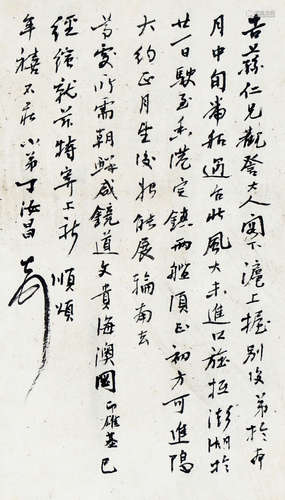 吉蓀仁兄觀詧大人閣下滬上握別後弟於本
月中旬帶船過台北風大未進口旋抵澎湖於
廿一日駛至香港定鎮兩艦須正初方可進隖
大約正月望後始能展輪南去
尊處所需朝鮮咸鏡道文貴海澳圖即雄基已
經繪就茲特寄上祈順頌
年禧不莊小弟丁汝昌